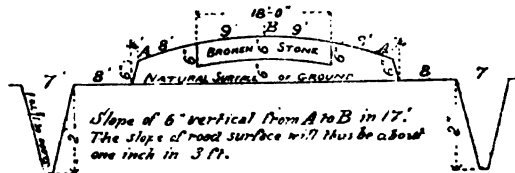 18'-0"
B
4' A 8' 9' 9' 9' A 4'
BROKEN STONE
6" 6 6 6" 6" 6"
NATURAL SURFACE OF GROUND
7' 8' 6 8 7
2" 2"
Slope of 6" vertical from A to B in 17'.
The slope of road surface will thus be about
one inch in 3 ft.